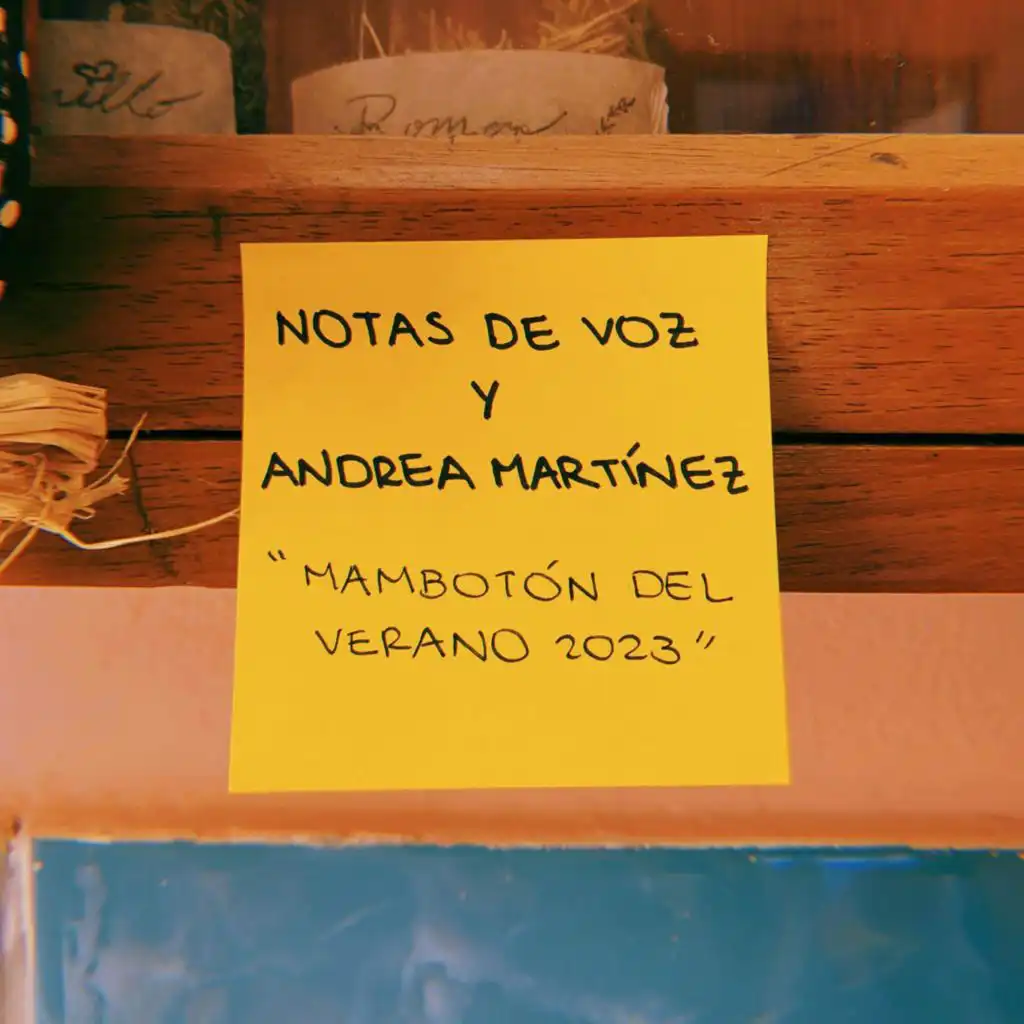 Romero
NOTAS DE VOZ
Y
ANDREA MARTÍNEZ
"MAMBOTÓN DEL
VERANO 2023"